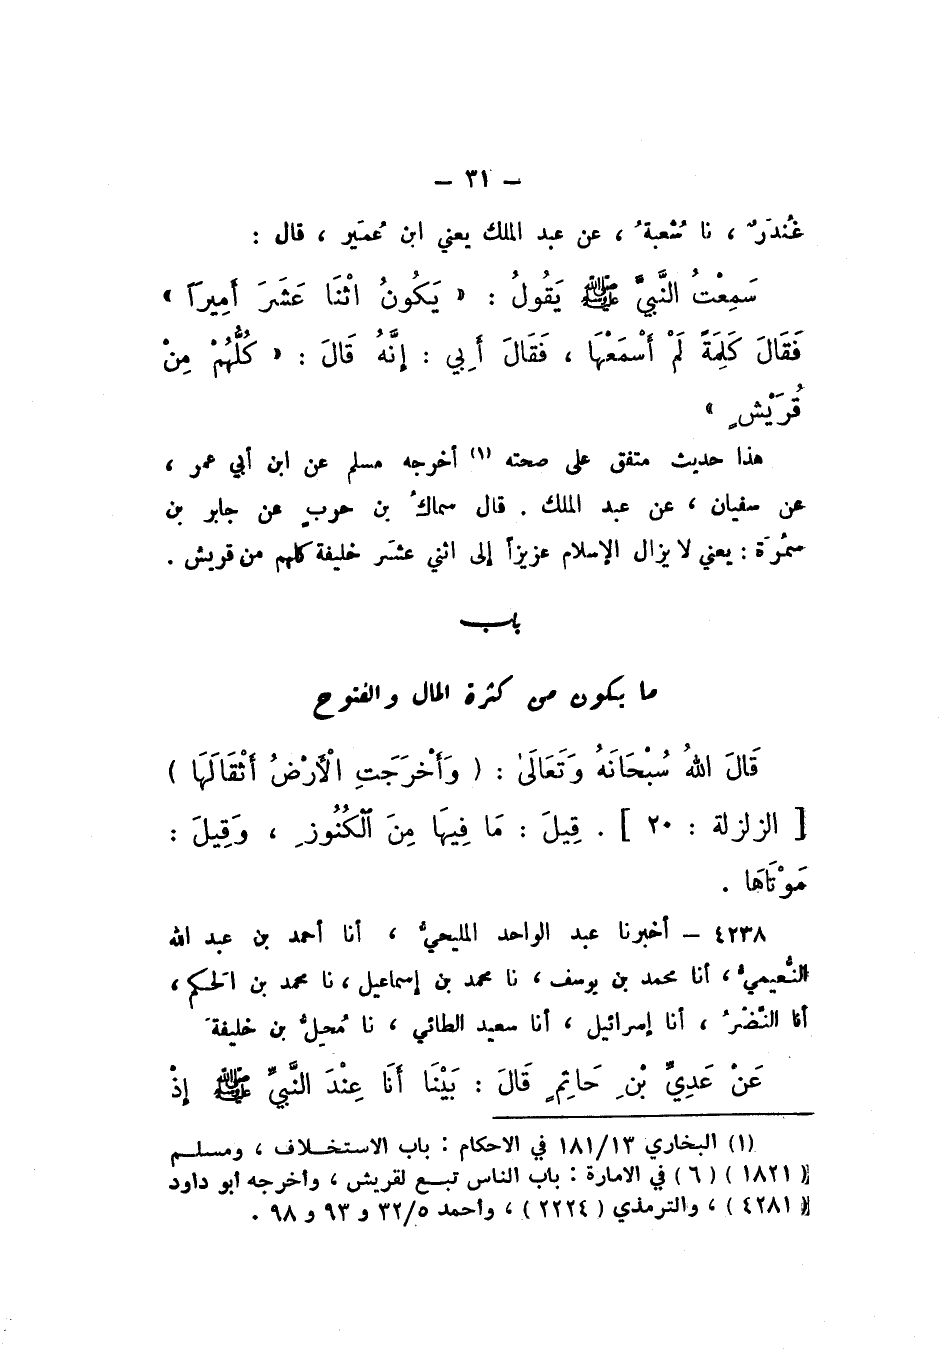 — ٣١ —
غُندَرٌ ، نا شُعبةُ ، عن عبد الملك يعني ابن عُمَير ، قال :
سَمِعْتُ النَّبِيَّ ﷺ يَقُولُ : « يَكُونُ اثْنَا عَشَرَ أَمِيرَاً »
فَقَالَ كَلِمَةً لَمْ أَسْمَعْهَا ، فَقَالَ أَبِي : إِنَّهُ قَالَ : « كُلُّهُمْ مِنْ
قُرَيْشٍ »
هذا حديث متفق على صحته (١) أخرجه مسلم عن ابن أبي عمر ،
عن سفيان ، عن عبد الملك . قال سماكُ بن حربٍ عن جابر بن
سمُرَة : يعني لا يزال الإسلام عزيزاً إلى اثني عشَر خليفة كلهم من قريش .
باب
ما يكون من كثرة المال والفتوح
قَالَ اللهُ سُبْحَانَهُ وَتَعَالَىٰ : ( وَأَخْرَجَتِ الْأَرْضُ أَثْقَالَهَا )
[ الزلزلة : ٢٠ ] . قِيلَ : مَا فِيهَا مِنَ الْكُنُوزِ ، وَقِيلَ :
مَوْتَاهَا .
٤٢٣٨ – أخبرنا عبد الواحد المليحيُّ ، أنا أحمد بن عبد الله
النُّعيميُّ ، أنا محمد بن يوسف ، نا محمد بن إسماعيل ، نا محمد بن الحكم ،
أنا النَّضْرُ ، أنا إسرائيل ، أنا سعيد الطائي ، نا مُحِلُّ بن خليفةَ
عَنْ عَدِيِّ بْنِ حَاتِمٍ قَالَ : بَيْنَا أَنَا عِنْدَ النَّبِيِّ ﷺ إِذْ
(١) البخاري ١٨١/١٣ في الاحكام : باب الاستخلاف ، ومسلم
( ١٨٢١ ) ( ٦ ) في الامارة : باب الناس تبع لقريش ، وأخرجه أبو داود
( ٤٢٨١ ) ، والترمذي ( ٢٢٢٤ ) ، وأحمد ٣٢/٥ و ٩٣ و ٩٨ .